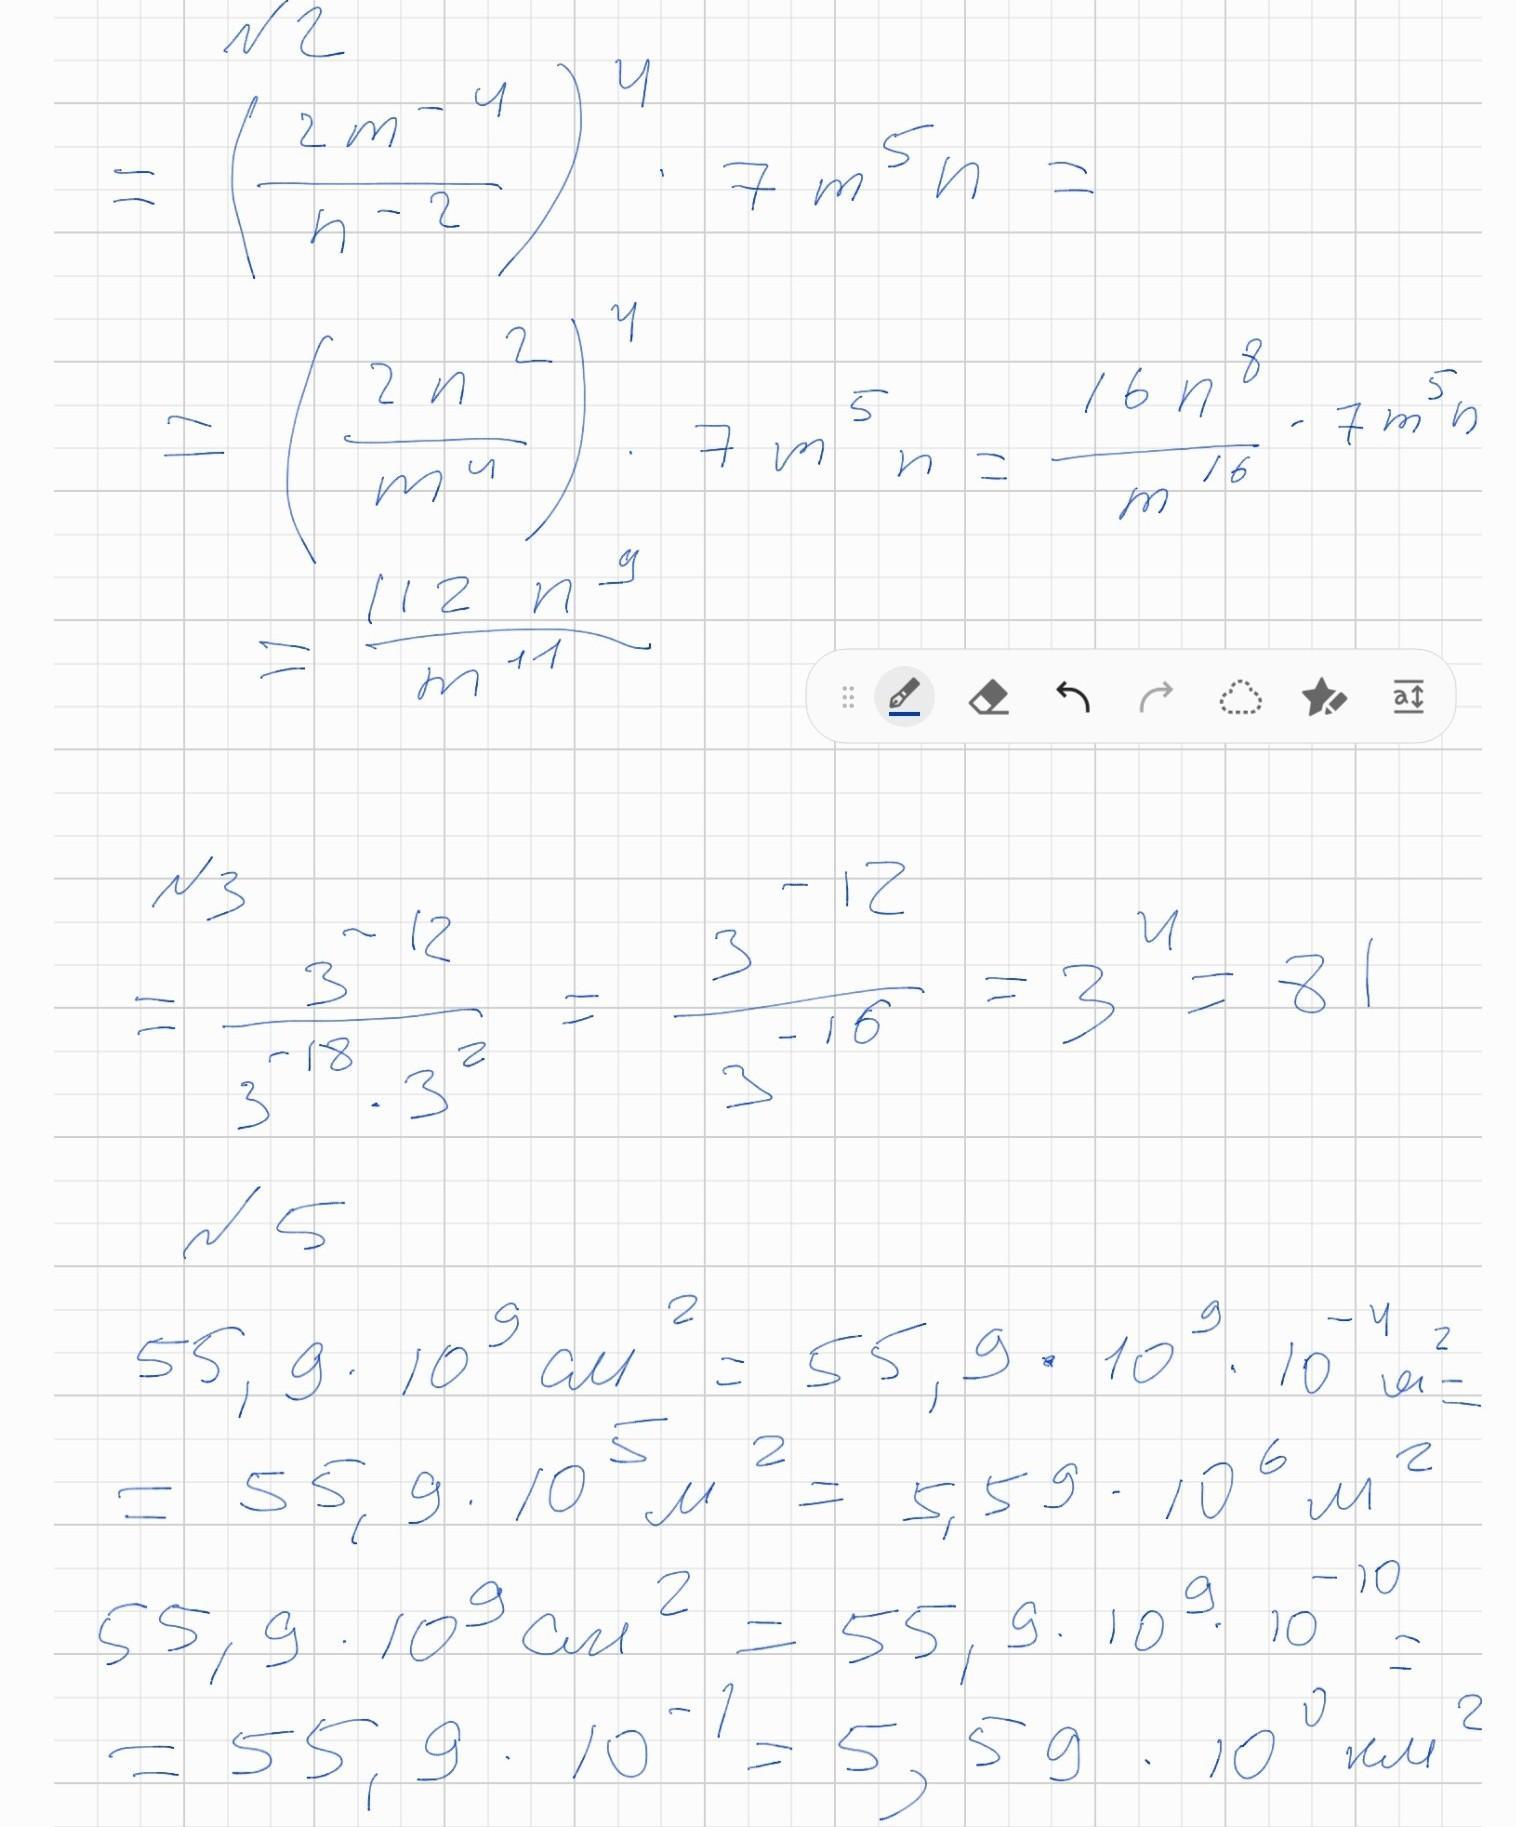 №2
= (2m⁻⁴ / n⁻²)⁴ · 7m⁵n =
= (2n² / m⁴)⁴ · 7m⁵n = 16n⁸ / m¹⁶ · 7m⁵n
= 112n⁹ / m¹¹
№3
= 3⁻¹² / (3⁻¹⁸ · 3²) = 3⁻¹² / 3⁻¹⁶ = 3⁴ = 81
№5
55,9 · 10⁹ см² = 55,9 · 10⁹ · 10⁻⁴ м² =
= 55,9 · 10⁵ м² = 5,59 · 10⁶ м²
55,9 · 10⁹ см² = 55,9 · 10⁹ · 10⁻¹⁰ =
= 55,9 · 10⁻¹ = 5,59 · 10⁰ км²